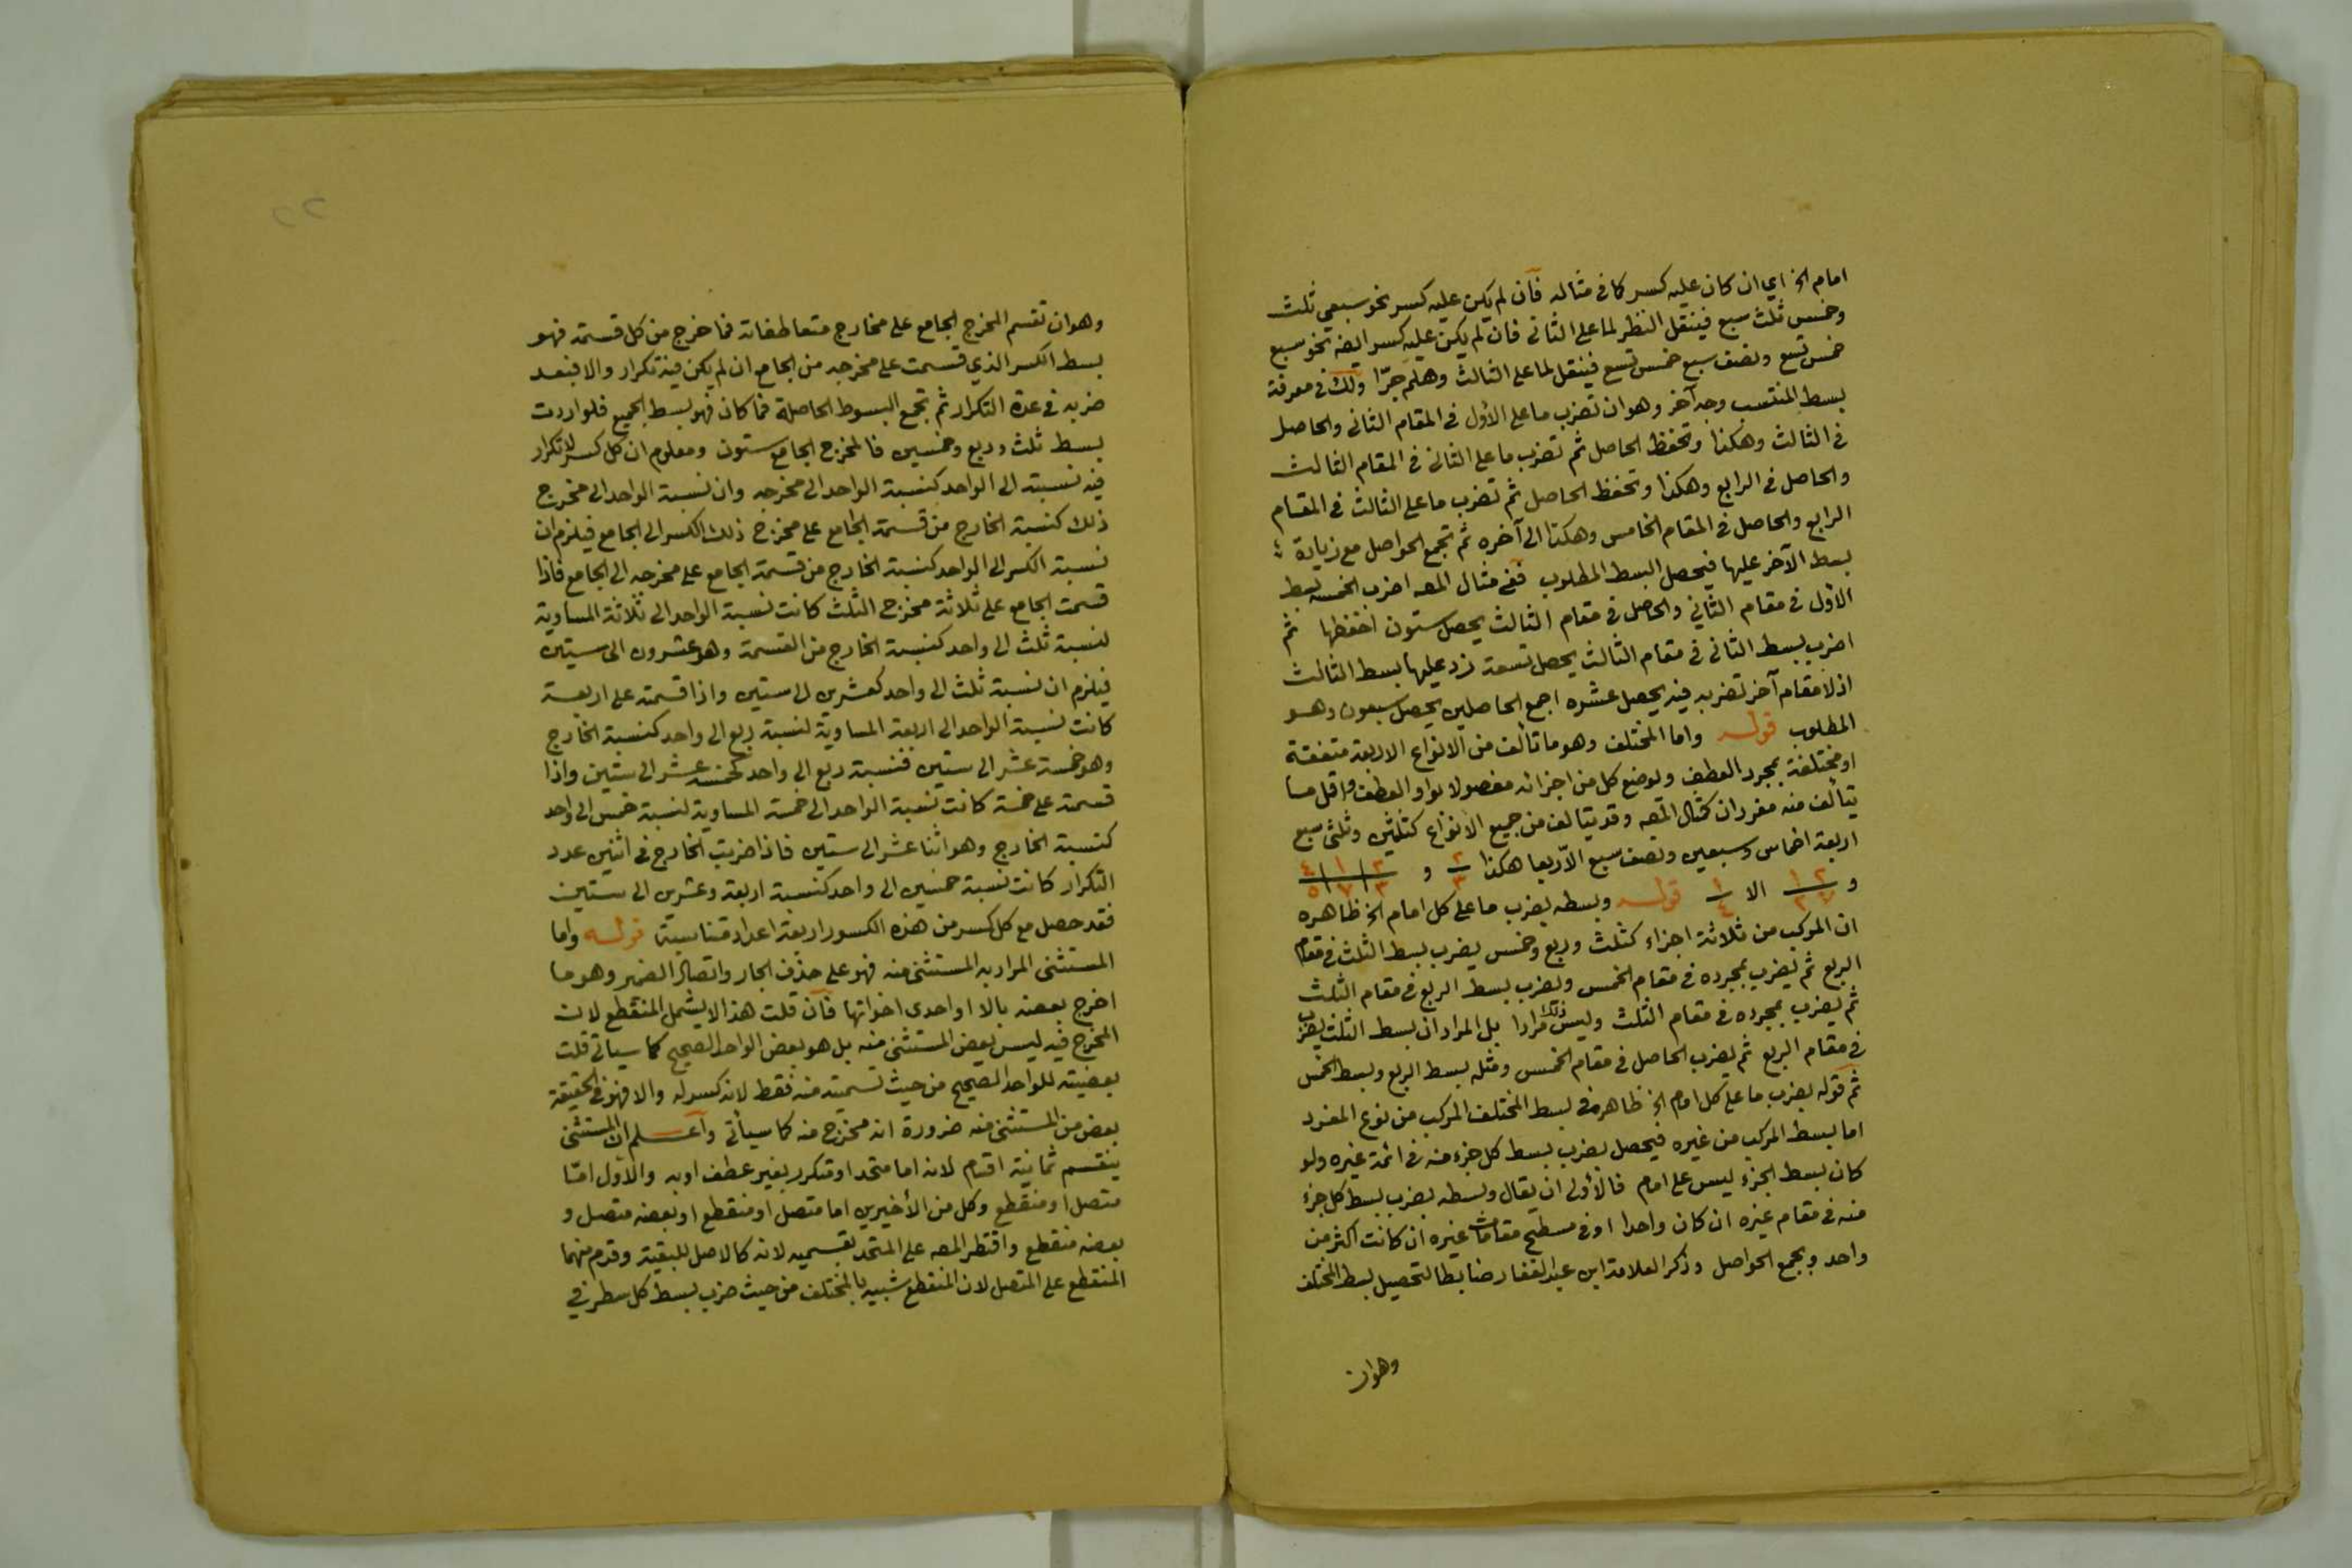 امام الخ اي ان كان عليه كسر كما في مثاله فان لم يكن عليه كسر نحو سبعي ثلث
وخمس ثلث سبع فينتقل النظر لما على الثاني فان لم يكن عليه كسر ايضا نحو سبع
خمس تسع ونصف سبع خمس تسع فينتقل لما على الثالث وهلم جرّا ولك في معرفة
بسط المنتسب وجه آخر وهو ان تضرب ما على الأول في المقام الثاني والحاصل
في الثالث وهكذا وتحفظ الحاصل ثم تضرب ما على الثاني في المقام الثالث
والحاصل في الرابع وهكذا وتحفظ الحاصل ثم تضرب ما على الثالث في المقام
الرابع والحاصل في المقام الخامس وهكذا الى آخره ثم تجمع الحواصل مع زيادة
بسط الآخر عليها فيحصل البسط المطلوب ففي مثال المصه اضرب الخمسة بسط
الأول في مقام الثاني والحاصل في مقام الثالث يحصل ستون احفظها ثم
اضرب بسط الثاني في مقام الثالث يحصل تسعة زد عليها بسط الثالث
اذ لا مقام آخر تضربه فيه يحصل عشره اجمع الحاصلين يحصل سبعون وهو
المطلوب قوله واما المختلف وهو ما تألف من الانواع الاربعة متفقة
او مختلفة بمجرد العطف ولوضع كل من اجزائه مفصولا بواو العطف واقل ما
يتألف منه مفردان كمثال المصه وقد يتألف من جميع الانواع كثلثين وثلثي سبع
اربعة اخماس وسبعين ونصف سبع الا ربعا هكذا ٢/٣ و ٢/٣ ١/٧ ٤/٥
و ٢/٧ ١/٢ الا ١/٤ قوله وبسطه بضرب ما على كل امام الخ ظاهره
ان المركب من ثلاثة اجزاء كثلث وربع وخمس يضرب بسط الثلث في مقام
الربع ثم يضرب بمجرده في مقام الخمس ويضرب بسط الربع في مقام الثلث
ثم يضرب بمجرده في مقام الثلث وليس ذلك مرادا بل المراد ان بسط الثلث يضرب
في مقام الربع ثم يضرب الحاصل في مقام الخمس ومثله بسط الربع وبسط الخمس
ثم قوله بضرب ما على كل امام الخ ظاهره في بسط المختلف المركب من نوع المفرد
اما بسط المركب من غيره فيحصل بضرب بسط كل جزء منه في ائمة غيره ولو
كان بسط الجزء ليس على امام فالأولى ان يقال وبسطه بضرب بسط كل جزء
منه في مقام غيره ان كان واحدا او في مسطح مقامات غيره ان كانت اكثر من
واحد وبجمع الحواصل وذكر العلامة ابن عبد الغفار ضابطا لتحصيل بسط المختلف
وهو ان
٢٢
وهو ان تقسم المخرج الجامع على مخارج متعاطفاته فما خرج من كل قسمة فهو
بسط الكسر الذي قسمت على مخرجه من الجامع ان لم يكن فيه تكرار والا فبعد
ضربه في عدة التكرار ثم تجمع البسوط الحاصلة فما كان فهو بسط الجميع فلو اردت
بسط ثلث وربع وخمسين فالمخرج الجامع ستون ومعلوم ان كل كسر لا تكرار
فيه نسبته الى الواحد كنسبة الواحد الى مخرجه وان نسبة الواحد الى مخرج
ذلك كنسبة الخارج من قسمة الجامع على مخرج ذلك الكسر الى الجامع فيلزم ان
نسبة الكسر الى الواحد كنسبة الخارج من قسمة الجامع على مخرجه الى الجامع فاذا
قسمت الجامع على ثلاثة مخرج الثلث كانت نسبة الواحد الى ثلاثة المساوية
لنسبة ثلث الى واحد كنسبة الخارج من القسمة وهو عشرون الى ستين
فيلزم ان نسبة ثلث الى واحد كعشرين الى ستين واذا قسمته على اربعة
كانت نسبة الواحد الى اربعة المساوية لنسبة ربع الى واحد كنسبة الخارج
وهو خمسة عشر الى ستين فنسبة ربع الى واحد كخمسة عشر الى ستين واذا
قسمته على خمسة كانت نسبة الواحد الى خمسة المساوية لنسبة خمس الى واحد
كنسبة الخارج وهو اثنا عشر الى ستين فاذا ضربت الخارج في اثنين عدد
التكرار كانت نسبة خمسين الى واحد كنسبة اربعة وعشرين الى ستين
فقد حصل مع كل كسر من هذه الكسور اربعة اعداد متناسبة قوله واما
المستثنى المراد به المستثنى منه فهو على حذف الجار واتصال الضمير وهو ما
اخرج بعضه بالا او احدى اخواتها فان قلت هذا لا يشمل المنقطع لان
المخرج فيه ليس بعض المستثنى منه بل هو بعض الواحد الصحيح كما سيأتي قلت
بعضيته للواحد الصحيح من حيث تسميته منه فقط لانه كسر له والا فهو في الحقيقة
بعض من المستثنى منه ضرورة انه مخرج منه كما سيأتي واعلم ان المستثنى
ينقسم ثمانية اقسام لانه اما متحد او متكرر بغير عطف او به والأول امّا
متصل او منقطع وكل من الأخيرين اما متصل او منقطع او بعضه متصل و
بعضه منقطع واقتصر المصه على المتحد بقسميه لانه كالاصل للبقية وقدم منهما
المنقطع على المتصل لان المنقطع شبيه بالمختلف من حيث ضرب بسط كل سطر في